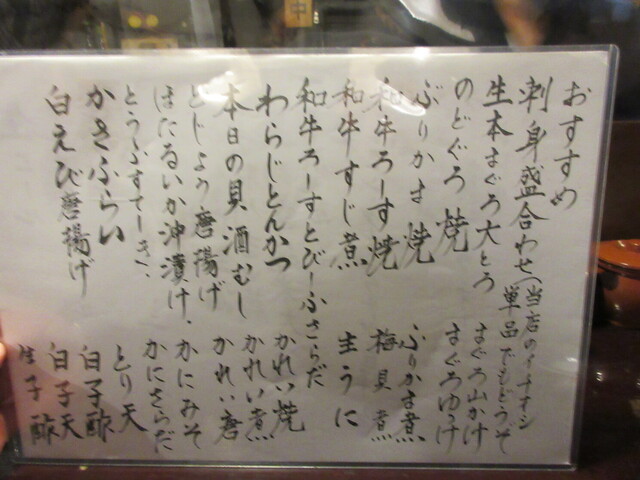 おすすめ
刺身盛合わせ(当店のイチオシ
単品でもどうぞ
生本まぐろ大とろ
まぐろ山かけ
のどぐろ焼
まぐろゆっけ
ぶりかま焼
ぶりかま煮
和牛ろーす焼
梅貝煮
和牛すじ煮
生うに
和牛ろーすとびーふさらだ
わらじとんかつ
かれい焼
本日の貝酒むし
かれい煮
どじょう唐揚げ
かれい唐
ほたるいか沖漬け
かにみそ
とうふすてーき
かにさらだ
かきふらい
とり天
白えび唐揚げ
白子酢
白子天
生子酢
中